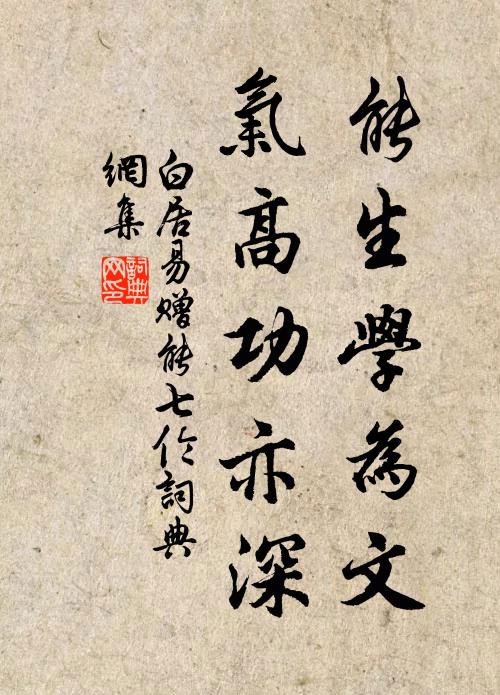 能生學為文
氣高功亦深
白居易贈能七伦詞典
網集
詞典
网印